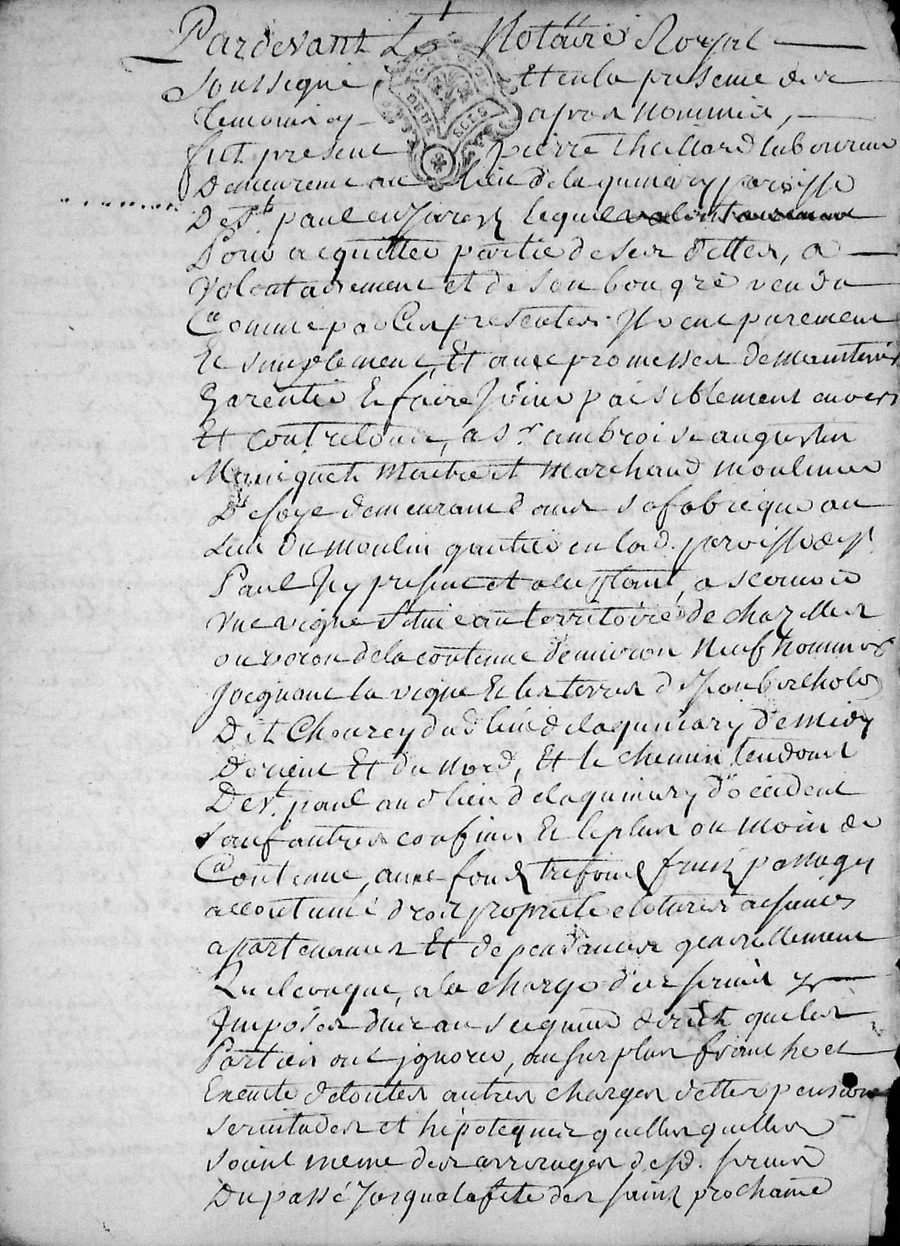 Pardevant Le Notaire Royal
soussigné, Et en la presence des
temoins cy apres nommés,
fut present pierre thollard laboureur
Demeurent au lieu de la quinary paroisse
De st. paul en Jarest lequel volontairement
Pour acquitter partie de ses dettes, a
volontairement et de son bon gré vendu
Comme par Les presentes Il vent purement
Et simplement, Et avec promesses de maintenir
Garentir Et faire Joüir paisiblement envers
Et contre tous, a sr. ambroise augustin
Maniquet Maitre et Marchand moulinier
De soye demeurant dans sa fabrique au
Lieu du moulin gautier en lad. paroisse de st.
Paul Icy present et aceptant, a scavoir
une vigne Située au territoire de chazelles
ou voron de la contenue d'environ Neuf hommes
Joignant la vigne Et les terres de Jean bertholos
Dit Chorey dud. lieu de la quinary de midy
D'orient Et du Nord, Et le chemin tendant
De st. paul aud. lieu de la quinary d'occident
sauf autres confins Et le plus ou moin de
Contenue, avec fond tresfond fruits passages
accoutumé droit proprieté clotures aisances
apartenances Et dependances generallement
Quelconque, a la charge des servis
Imposés dus au seigneur direct que les
Parties ont ignorer, au surplus franche et
Exempte de toutes autres charges dettes pensions
servitudes et hipoteques quelles quelles
soient meme des arrerages desd. servis
Du passé Jusqua la fete des saint prochaine